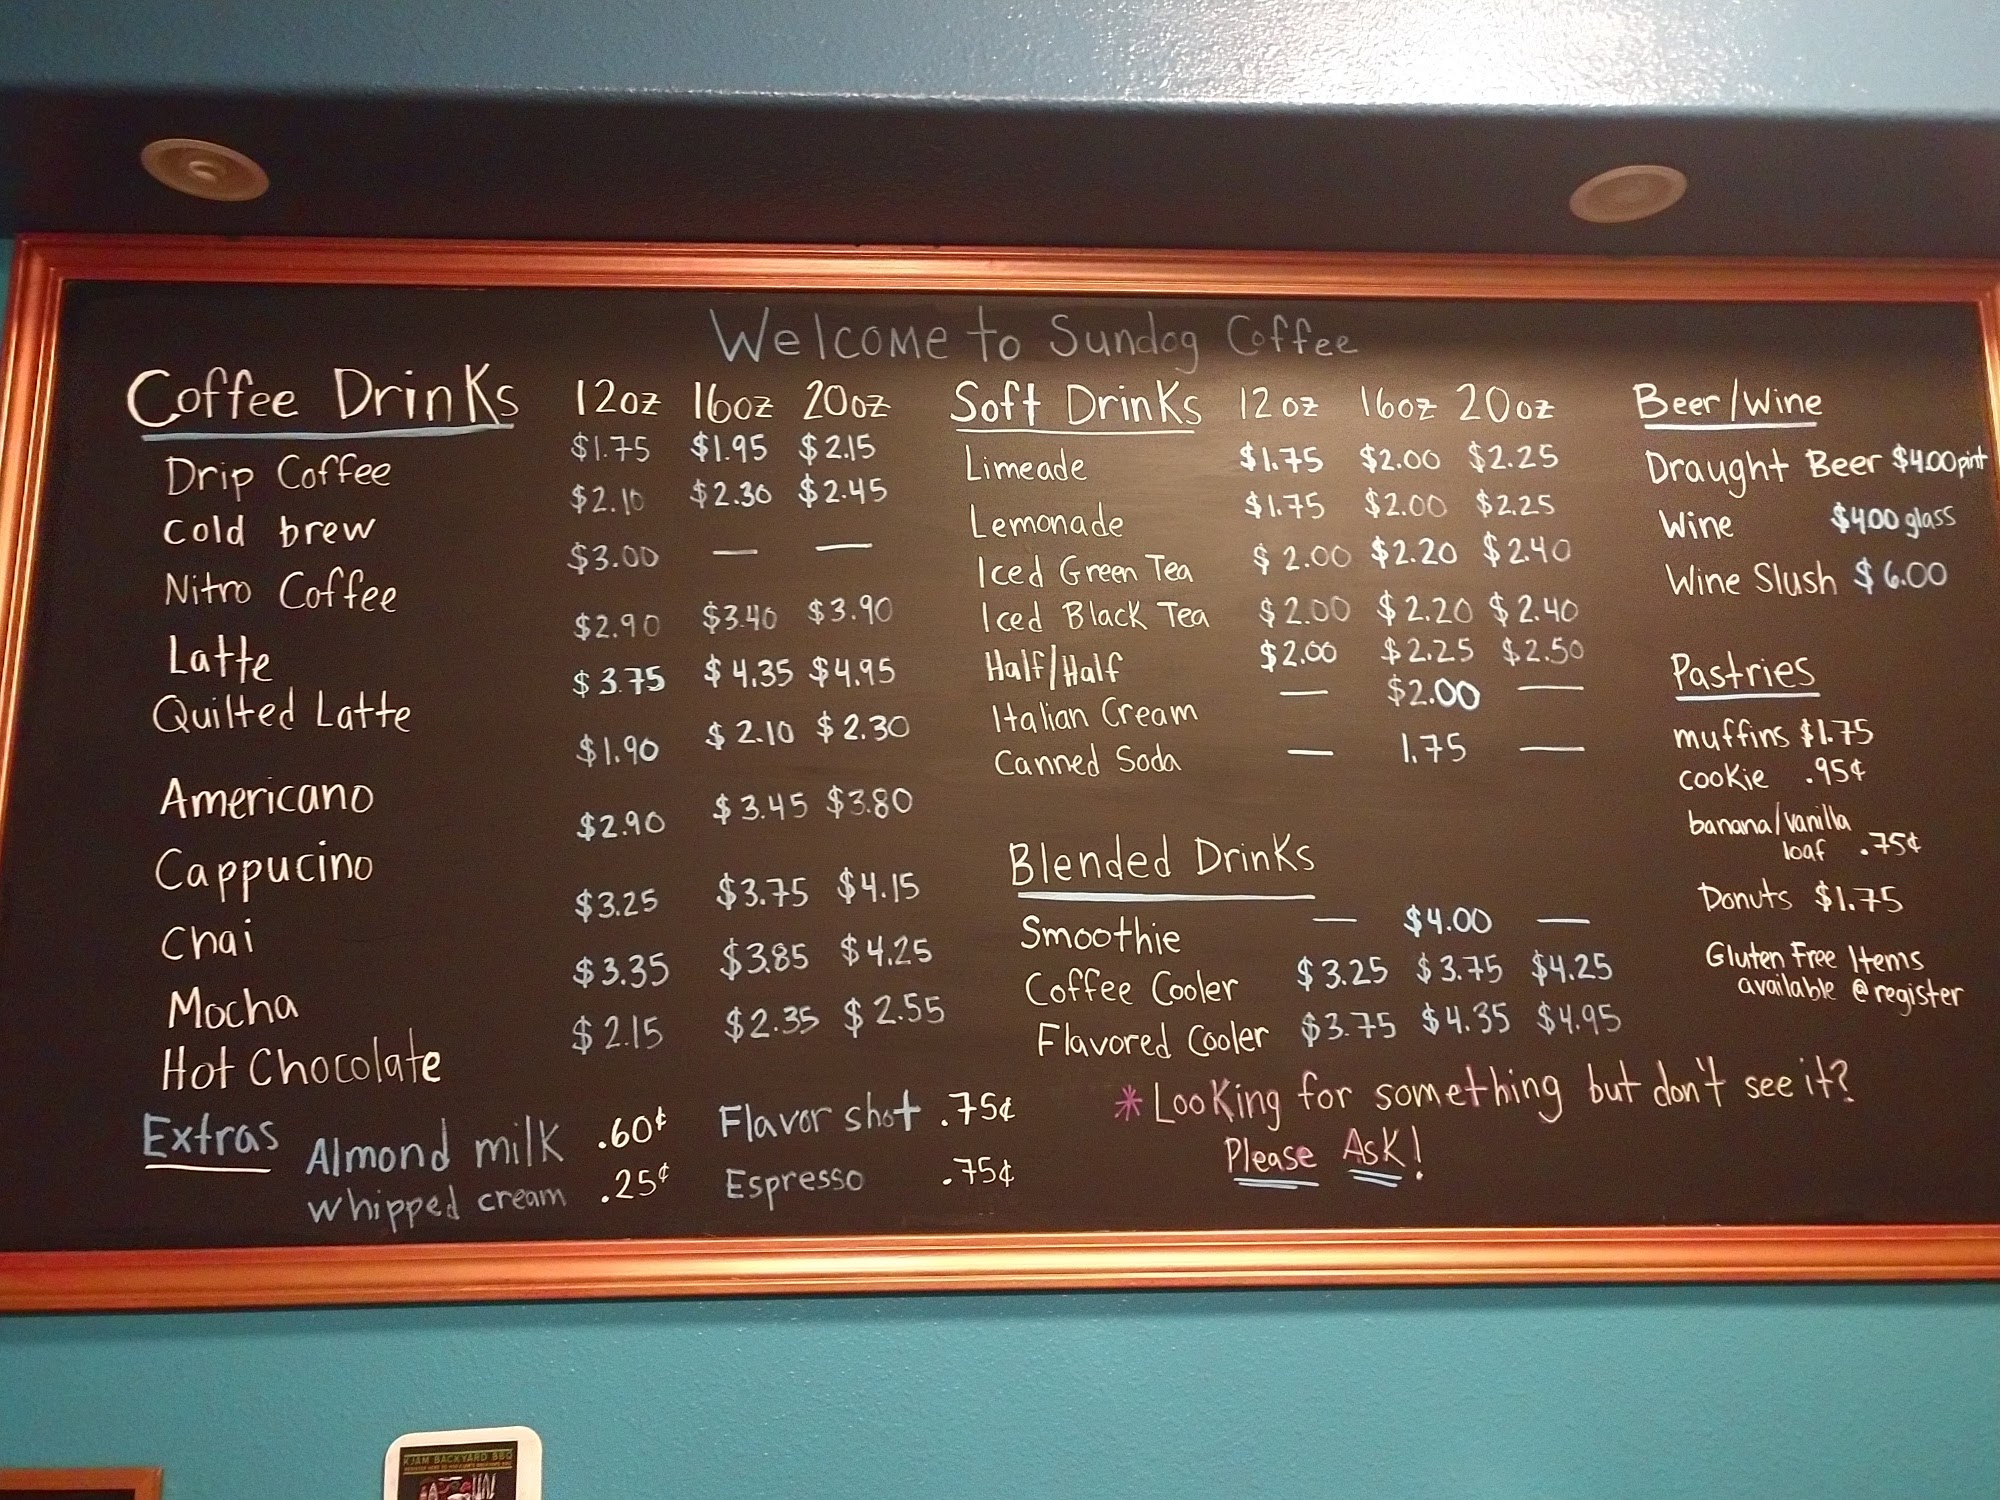 Welcome to Sundog Coffee
Coffee Drinks 12oz 16oz 20oz
Drip Coffee $1.75 $1.95 $2.15
Cold brew $2.10 $2.30 $2.45
Nitro Coffee $3.00 — —
Latte $2.90 $3.40 $3.90
Quilted Latte $3.75 $4.35 $4.95
Americano $1.90 $2.10 $2.30
Cappucino $2.90 $3.45 $3.80
Chai $3.25 $3.75 $4.15
Mocha $3.35 $3.85 $4.25
Hot Chocolate $2.15 $2.35 $2.55
Extras Almond milk .60¢ Flavor shot .75¢
whipped cream .25¢ Espresso .75¢
Soft Drinks 12oz 16oz 20oz
Limeade $1.75 $2.00 $2.25
Lemonade $1.75 $2.00 $2.25
Iced Green Tea $2.00 $2.20 $2.40
Iced Black Tea $2.00 $2.20 $2.40
Half/Half $2.00 $2.25 $2.50
Italian Cream — $2.00 —
Canned Soda — 1.75 —
Blended Drinks
Smoothie — $4.00 —
Coffee Cooler $3.25 $3.75 $4.25
Flavored Cooler $3.75 $4.35 $4.95
*Looking for something but don't see it?
Please Ask!
Beer/Wine
Draught Beer $4.00 pint
Wine $4.00 glass
Wine Slush $6.00
Pastries
muffins $1.75
cookie .95¢
banana/vanilla
loaf .75¢
Donuts $1.75
Gluten Free Items
available @ register
KJAM BACKYARD BBQ